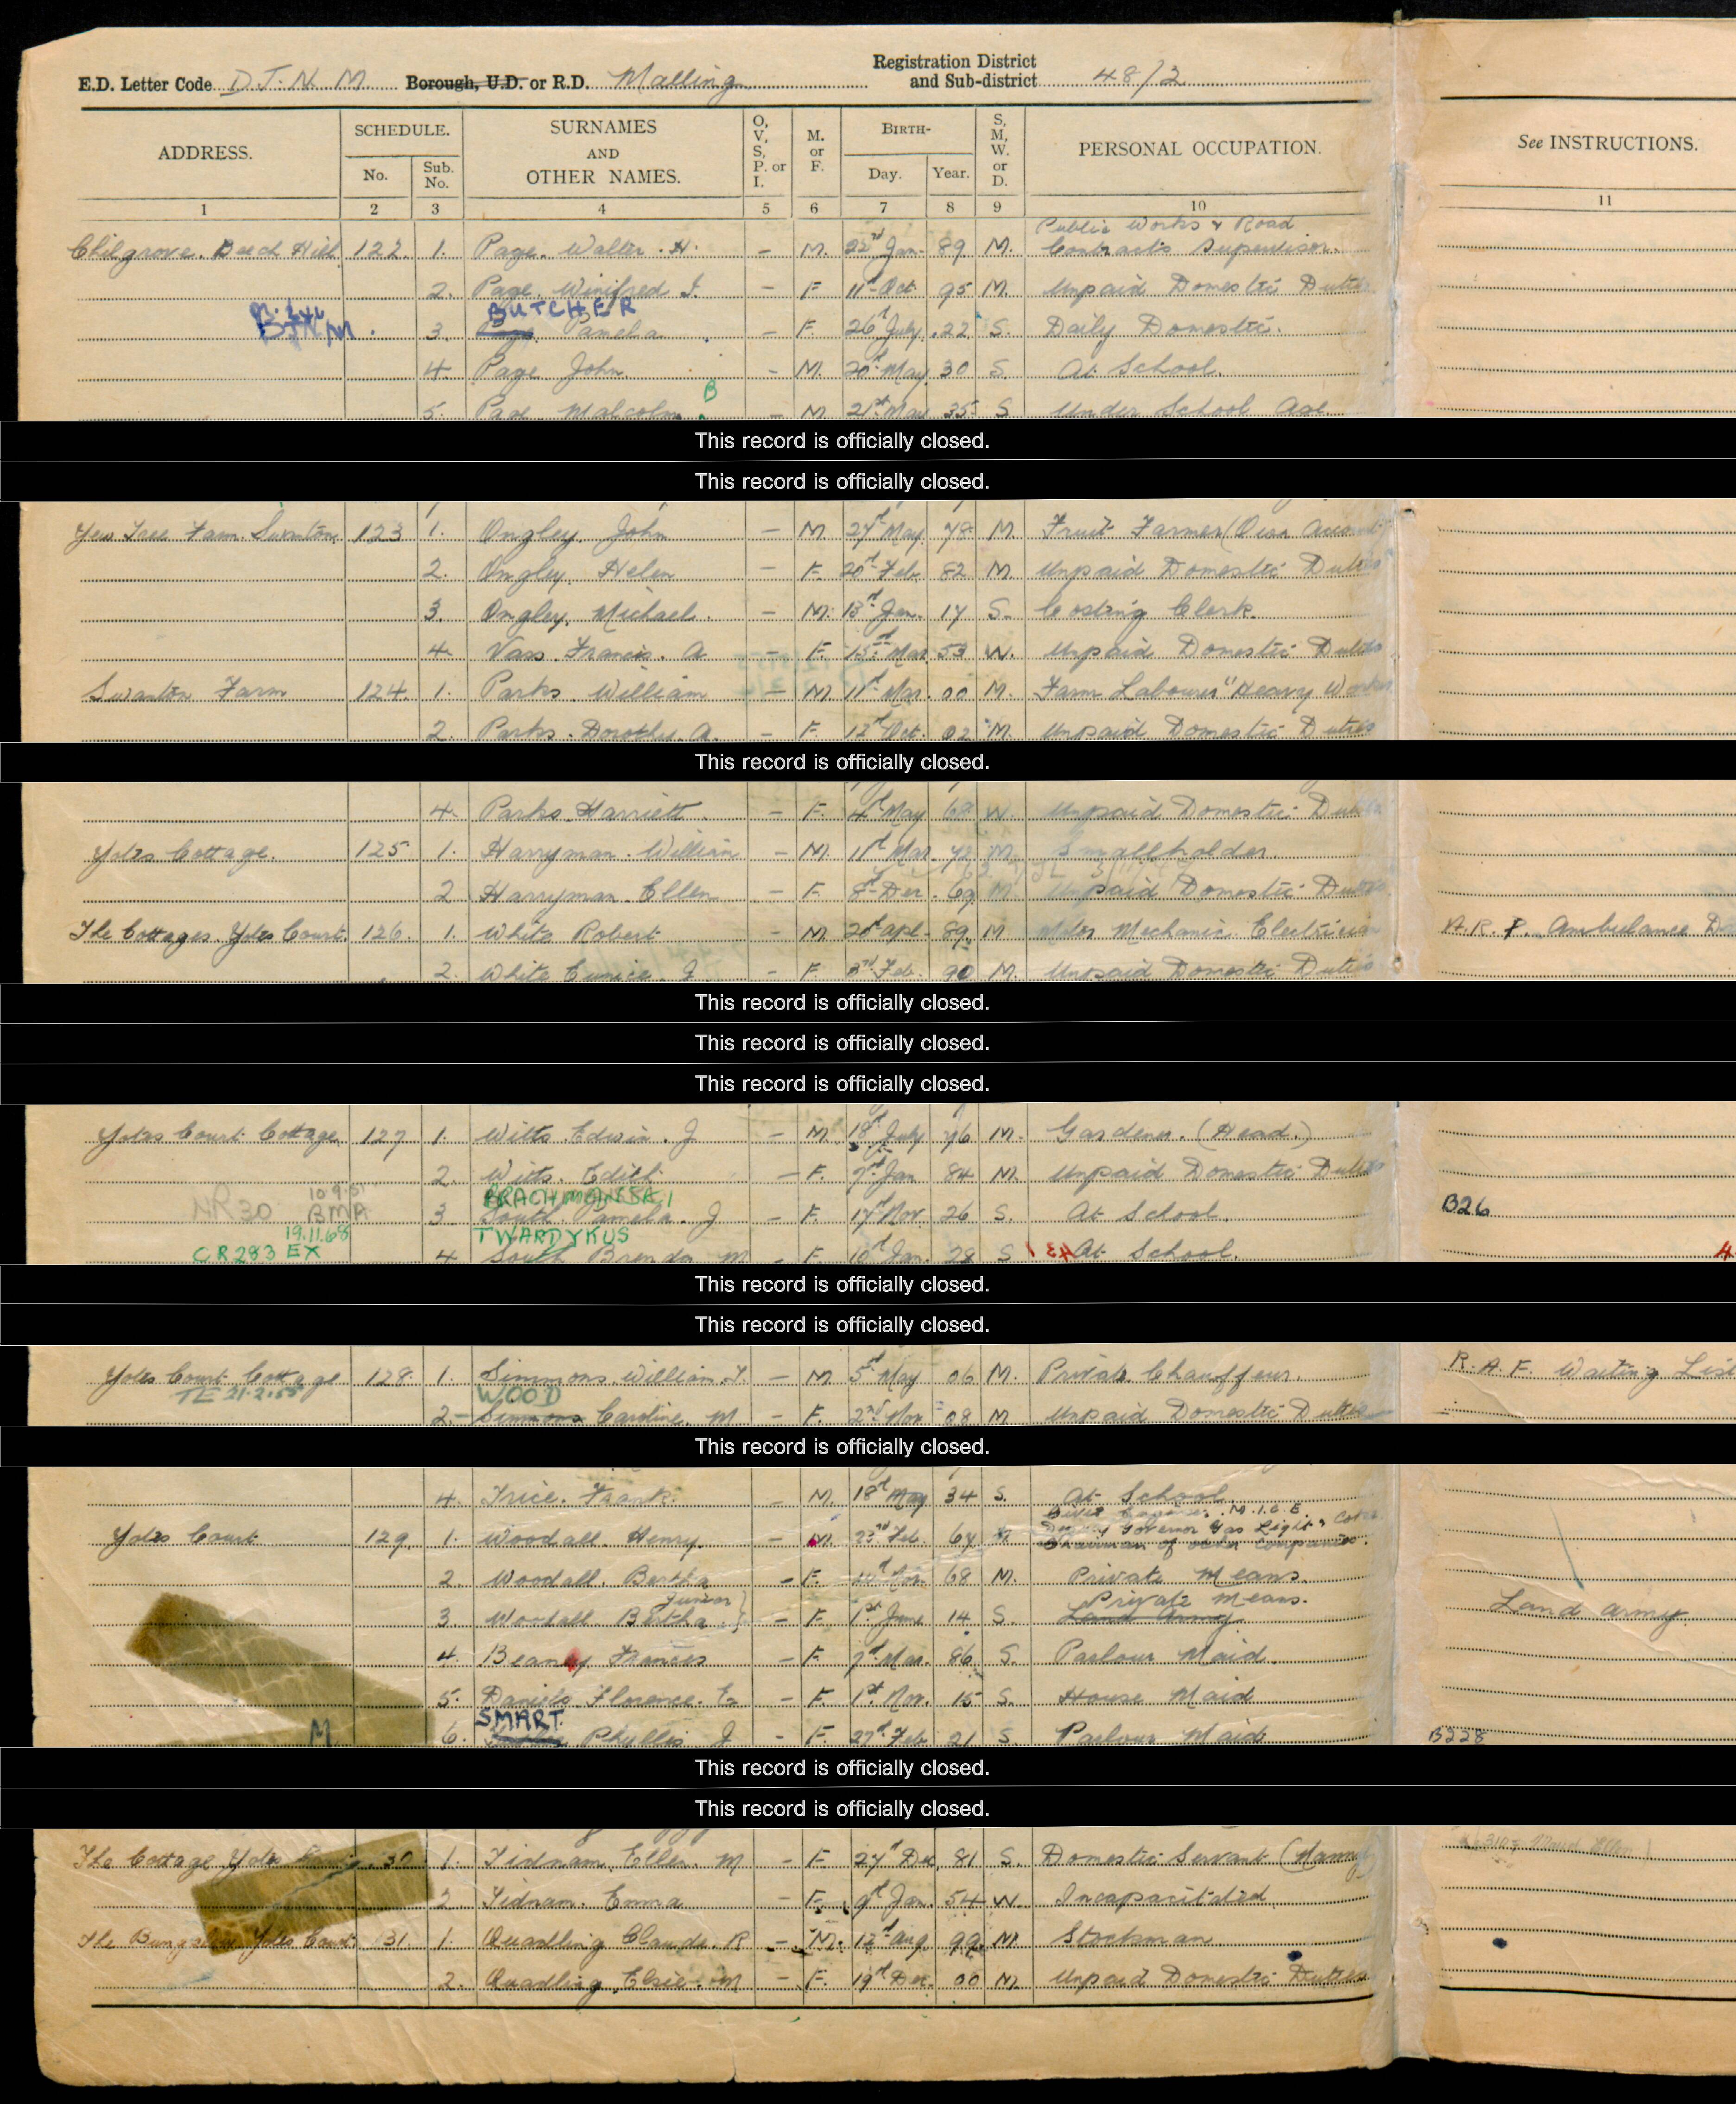 E.D. Letter Code D J. N. M Borough, U.D. or R.D. Malling Registration District and Sub-district 48/2
ADDRESS. SCHEDULE. No. Sub. No. SURNAMES AND OTHER NAMES. O, V, S, P. or I. M. or F. BIRTH- Day. Year. S, M, W. or D. PERSONAL OCCUPATION. See INSTRUCTIONS.
1 2 3 4 5 6 7 8 9 10 11
Public Works & Road
Chilgrove. Beech Hill 122. 1. Page. Walter. H. – M. 22nd Jan. 89 M. Contracts Supervisor.
2. Page. Winifred J. – F 11th Oct. 95 M. Unpaid Domestic Duties
BUTCHER
3. Pamela – F. 26th July. 22 S. Daily Domestic.
4. Page John. – M. 20th May 30 S. At School.
B
5. Page Malcolm. – M. 21st Mar 35 S Under School Age
This record is officially closed.
This record is officially closed.
Yew Tree Farm. Swanton 123 1. Ongley. John – M. 27th May. 78 M. Fruit Farmer (Own Account
2. Ongley. Helen – F. 20th Feb. 82 M. Unpaid Domestic Duties
3. Ongley. Michael. – M. 13th Jan. 17 S. Costing Clerk.
4. Vass. Francis. A – F. 15th Mar 53 W. Unpaid Domestic Duties
Swanton Farm 124. 1. Parks. William – M 11th Mar. 00 M. Farm Labourer "Heavy Worker
2. Parks. Dorothy. A. – F. 12th Oct. 02 M. Unpaid Domestic Duties
This record is officially closed.
4. Parks Harriett. – F. 4th May 68 W. Unpaid Domestic Duties
Yotes Cottage. 125 1. Harryman. William – M. 11th Mar. 72 M. Smallholder.
2 Harryman. Ellen – F. 8th Dec. 69 M Unpaid Domestic Duties
The Cottages. Yotes Court. 126. 1. White Robert – M 20th Apl. 89 M Motor Mechanic Electrician A.R.P. Ambulance
2. White Eunice. J. – F. 3rd Feb. 90 M. Unpaid Domestic Duties
This record is officially closed.
This record is officially closed.
This record is officially closed.
Yotes Court. Cottage. 127 1. Witts Edwin. J – M. 18th July 76 M. Gardener. (Head.)
2. Witts. Edith – F. 7th Jan 84 M. Unpaid Domestic Duties
NR30 10.9.51 BMA
3 South. Pamela. J – F. 17th Nov 26 S. At School. B26
19.11.68 TWARDYKUS
CR283 EX 4 South Brenda M – F. 10th Jan. 28 S At School.
This record is officially closed.
This record is officially closed.
Yotes Court. Cottage 128. 1. Simmons. William. – M. 5th May 06 M. Private Chauffeur. R.A.F. Waiting List
TE 21.2.55 WOOD
2 Simmons Caroline. M – F. 2nd Nov 08 M Unpaid Domestic Duties
This record is officially closed.
4. Trice. Frank. – M. 18th May 34 S. At School
Civil Engineer. M.I.C.E.
Yotes Court 129. 1. Woodall. Henry. – M. 23rd Feb. 67 Governor Gas Light & Coke
Chairman of other companies.
2. Woodall. Bertha – F. 68 M. Private Means.
Junior Private Means.
3. Woodall. Bertha. – F. 1st June 14 S. Land Army Land Army.
4. Beany Frances – F. 7th Mar. 86 S. Parlour Maid.
5. Daniels Florence. E. – F. 1st Nov. 15 S. House Maid
SMART.
M 6. Phyllis J – F. 27th Feb 21 S. Parlour Maid. B228
This record is officially closed.
This record is officially closed.
The Cottage Yotes 30 1. Tidnam, Ellen. M – F 27th Dec. 81 S. Domestic Servant (Nanny
2 Tidnam. Emma – F. 9th Jan. 54 W. Incapacitated
The Bungalow Yotes Court. 31. 1. Quadling Claude. R – M. 12th Aug. 99 M Stockman
2. Quadling, Elsie. M – F. 19th Dec. 00 M. Unpaid Domestic Duties